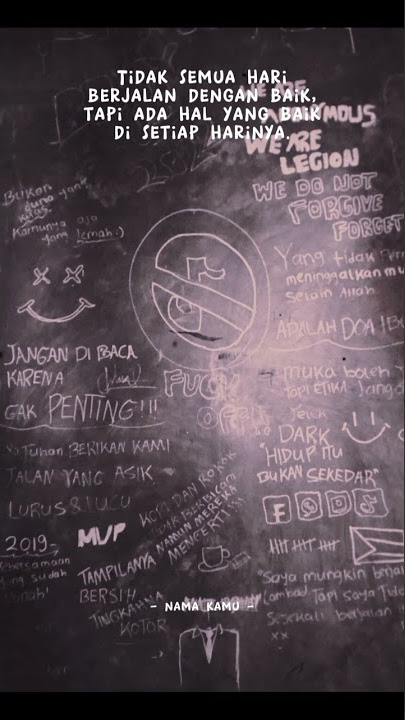 TIDAK SEMUA HARI
BERJALAN DENGAN BAIK,
TAPI ADA HAL YANG BAIK
DI SETIAP HARINYA.
WE ARE
LEGION
WE DO NOT
FORGIVE
FORGET
Bukan
Kamunya aja
yang lemah :)
Yang tidak
meninggalkanmu
selain Allah
ADALAH DOA IBU
JANGAN DI BACA
KARENA
GAK PENTING!!!
FUCK
OFF
muka boleh
TAPI ETIKA Jangan
DARK
"HIDUP ITU
BUKAN SEKEDAR"
Ya Tuhan BERIKAN KAMI
JALAN YANG ASIK
LURUS & LUCU
KOPI DAN ROKOK
TIDAK BERBICARA
NAMUN MEREKA
MENGERTI!!!
MVP
2019-
yang sudah
TAMPILANYA
BERSIH
TINGKAHNA
KOTOR
- NAMA KAMU -
"Saya mungkin
Lambat, Tapi saya
Sesekali berjalan
xx